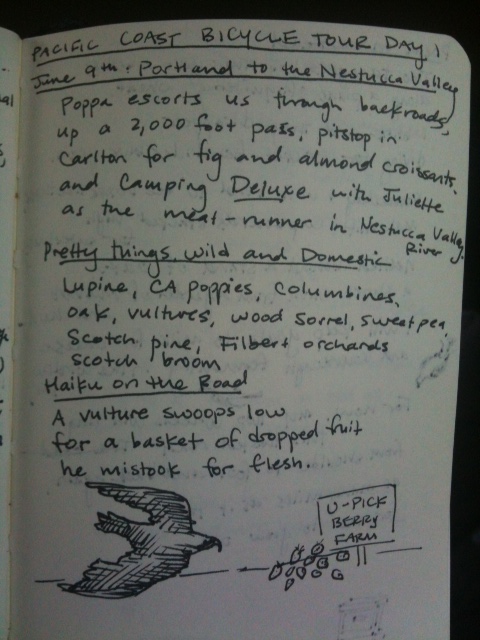 PACIFIC COAST BICYCLE TOUR DAY 1
June 9th: Portland to the Nestucca Valley
Poppa escorts us through backroads,
up a 2,000 foot pass, pitstop in
Carlton for fig and almond croissants,
and Camping Deluxe with Juliette
as the meat-runner in Nestucca Valley.
River
Pretty things, Wild and Domestic
Lupine, CA poppies, Columbines,
oak, vultures, wood sorrel, sweet pea,
Scotch pine, Filbert orchards
scotch broom
Haiku on the Road
A vulture swoops low
for a basket of dropped fruit
he mistook for flesh.
U-PICK
BERRY
FARM